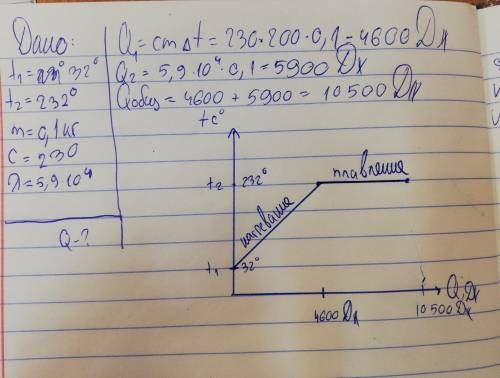 Дано:
t₁ = 32°
t₂ = 232°
m = 0,1 кг
C = 230
λ = 5,9·10⁴
Q - ?
Q₁ = cm Δt = 230·200·0,1 = 4600 Дж
Q₂ = 5,9·10⁴·0,1 = 5900 Дж
Qобщ = 4600 + 5900 = 10 500 Дж
t c°
t₂ 232° плавление
нагревание
t₁ 32°
Q, Дж
4600 Дж
10 500 Дж